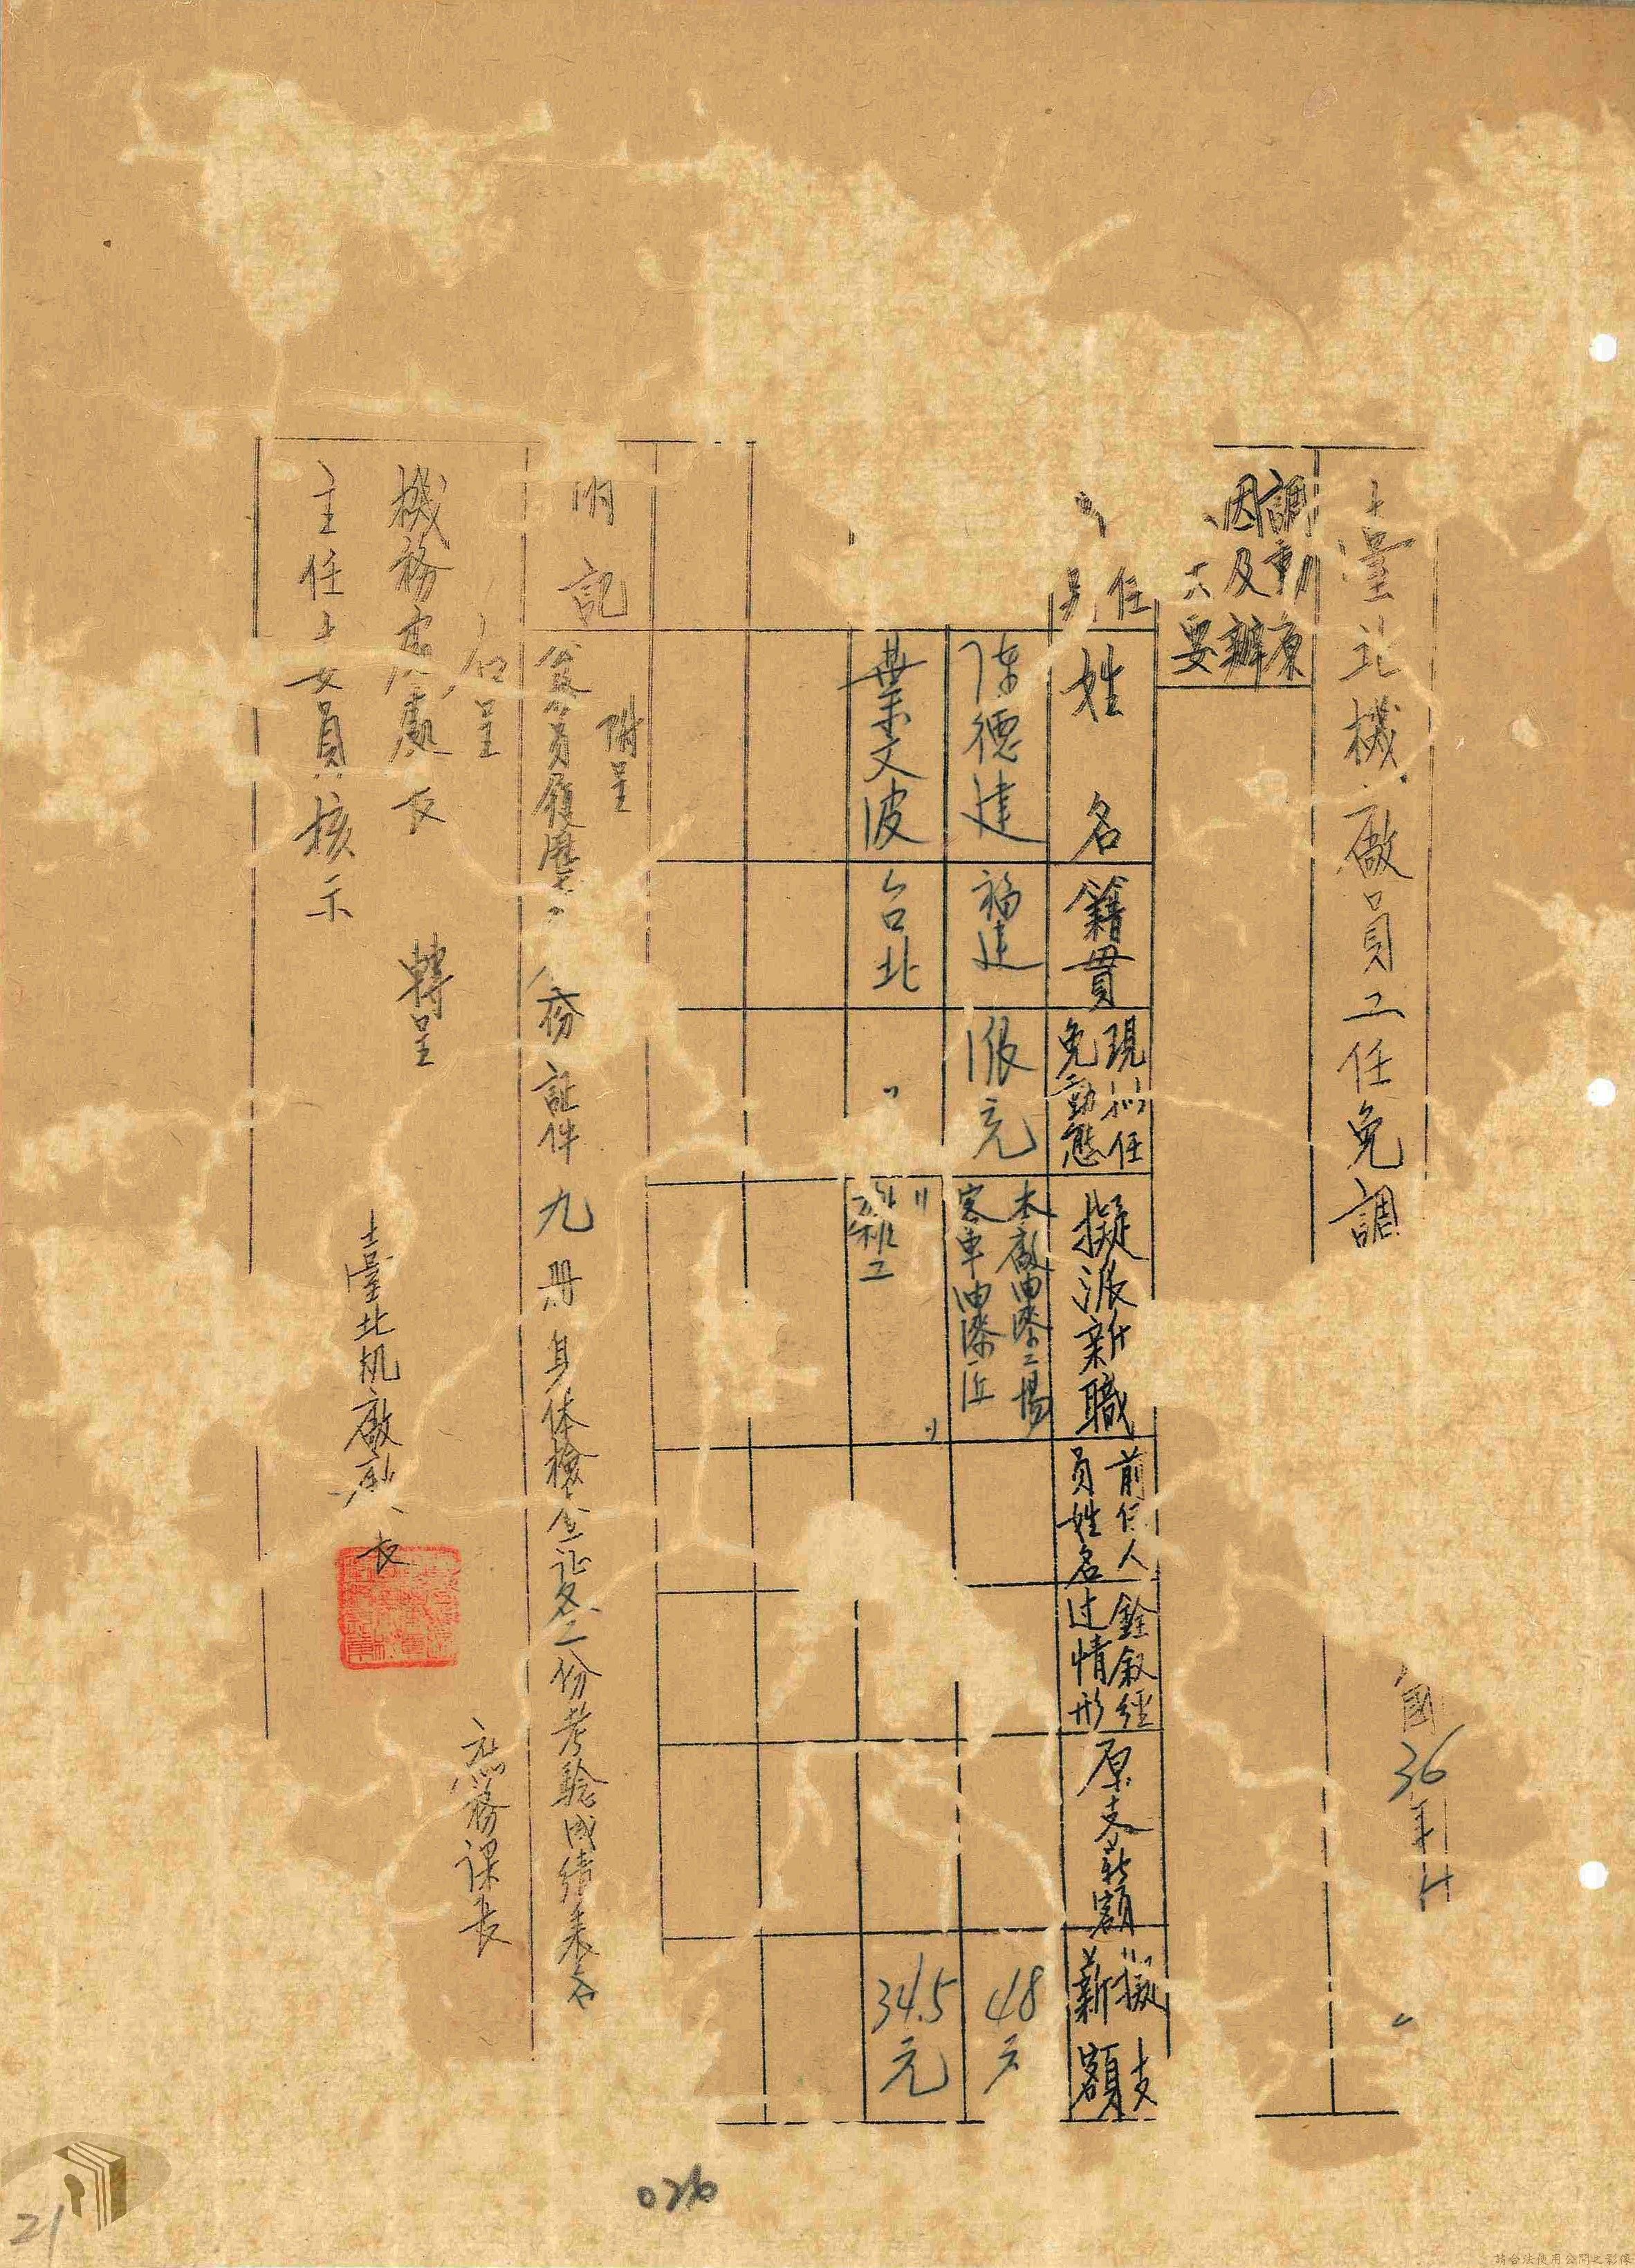 臺北機廠員工任免調
國36年
調動原
因及辦
要
任
別
姓名
籍貫
現擬任
免動態
擬派新職
前任人
員姓名
銓敘經
過情形
原支薪額
擬支
薪額
陳德建
福建
派充
本廠油漆工場
客車油漆匠
48元
葉文波
台北
〃
〃 〃
雜工
34.5元
附記
附呈
資員履歷
份証件九册身体檢查証各二份考驗成績表各
右呈
機務處處長 轉呈
主任委員核示
臺北机廠廠長
庶務課長
026
21
請合法使用公開之影像